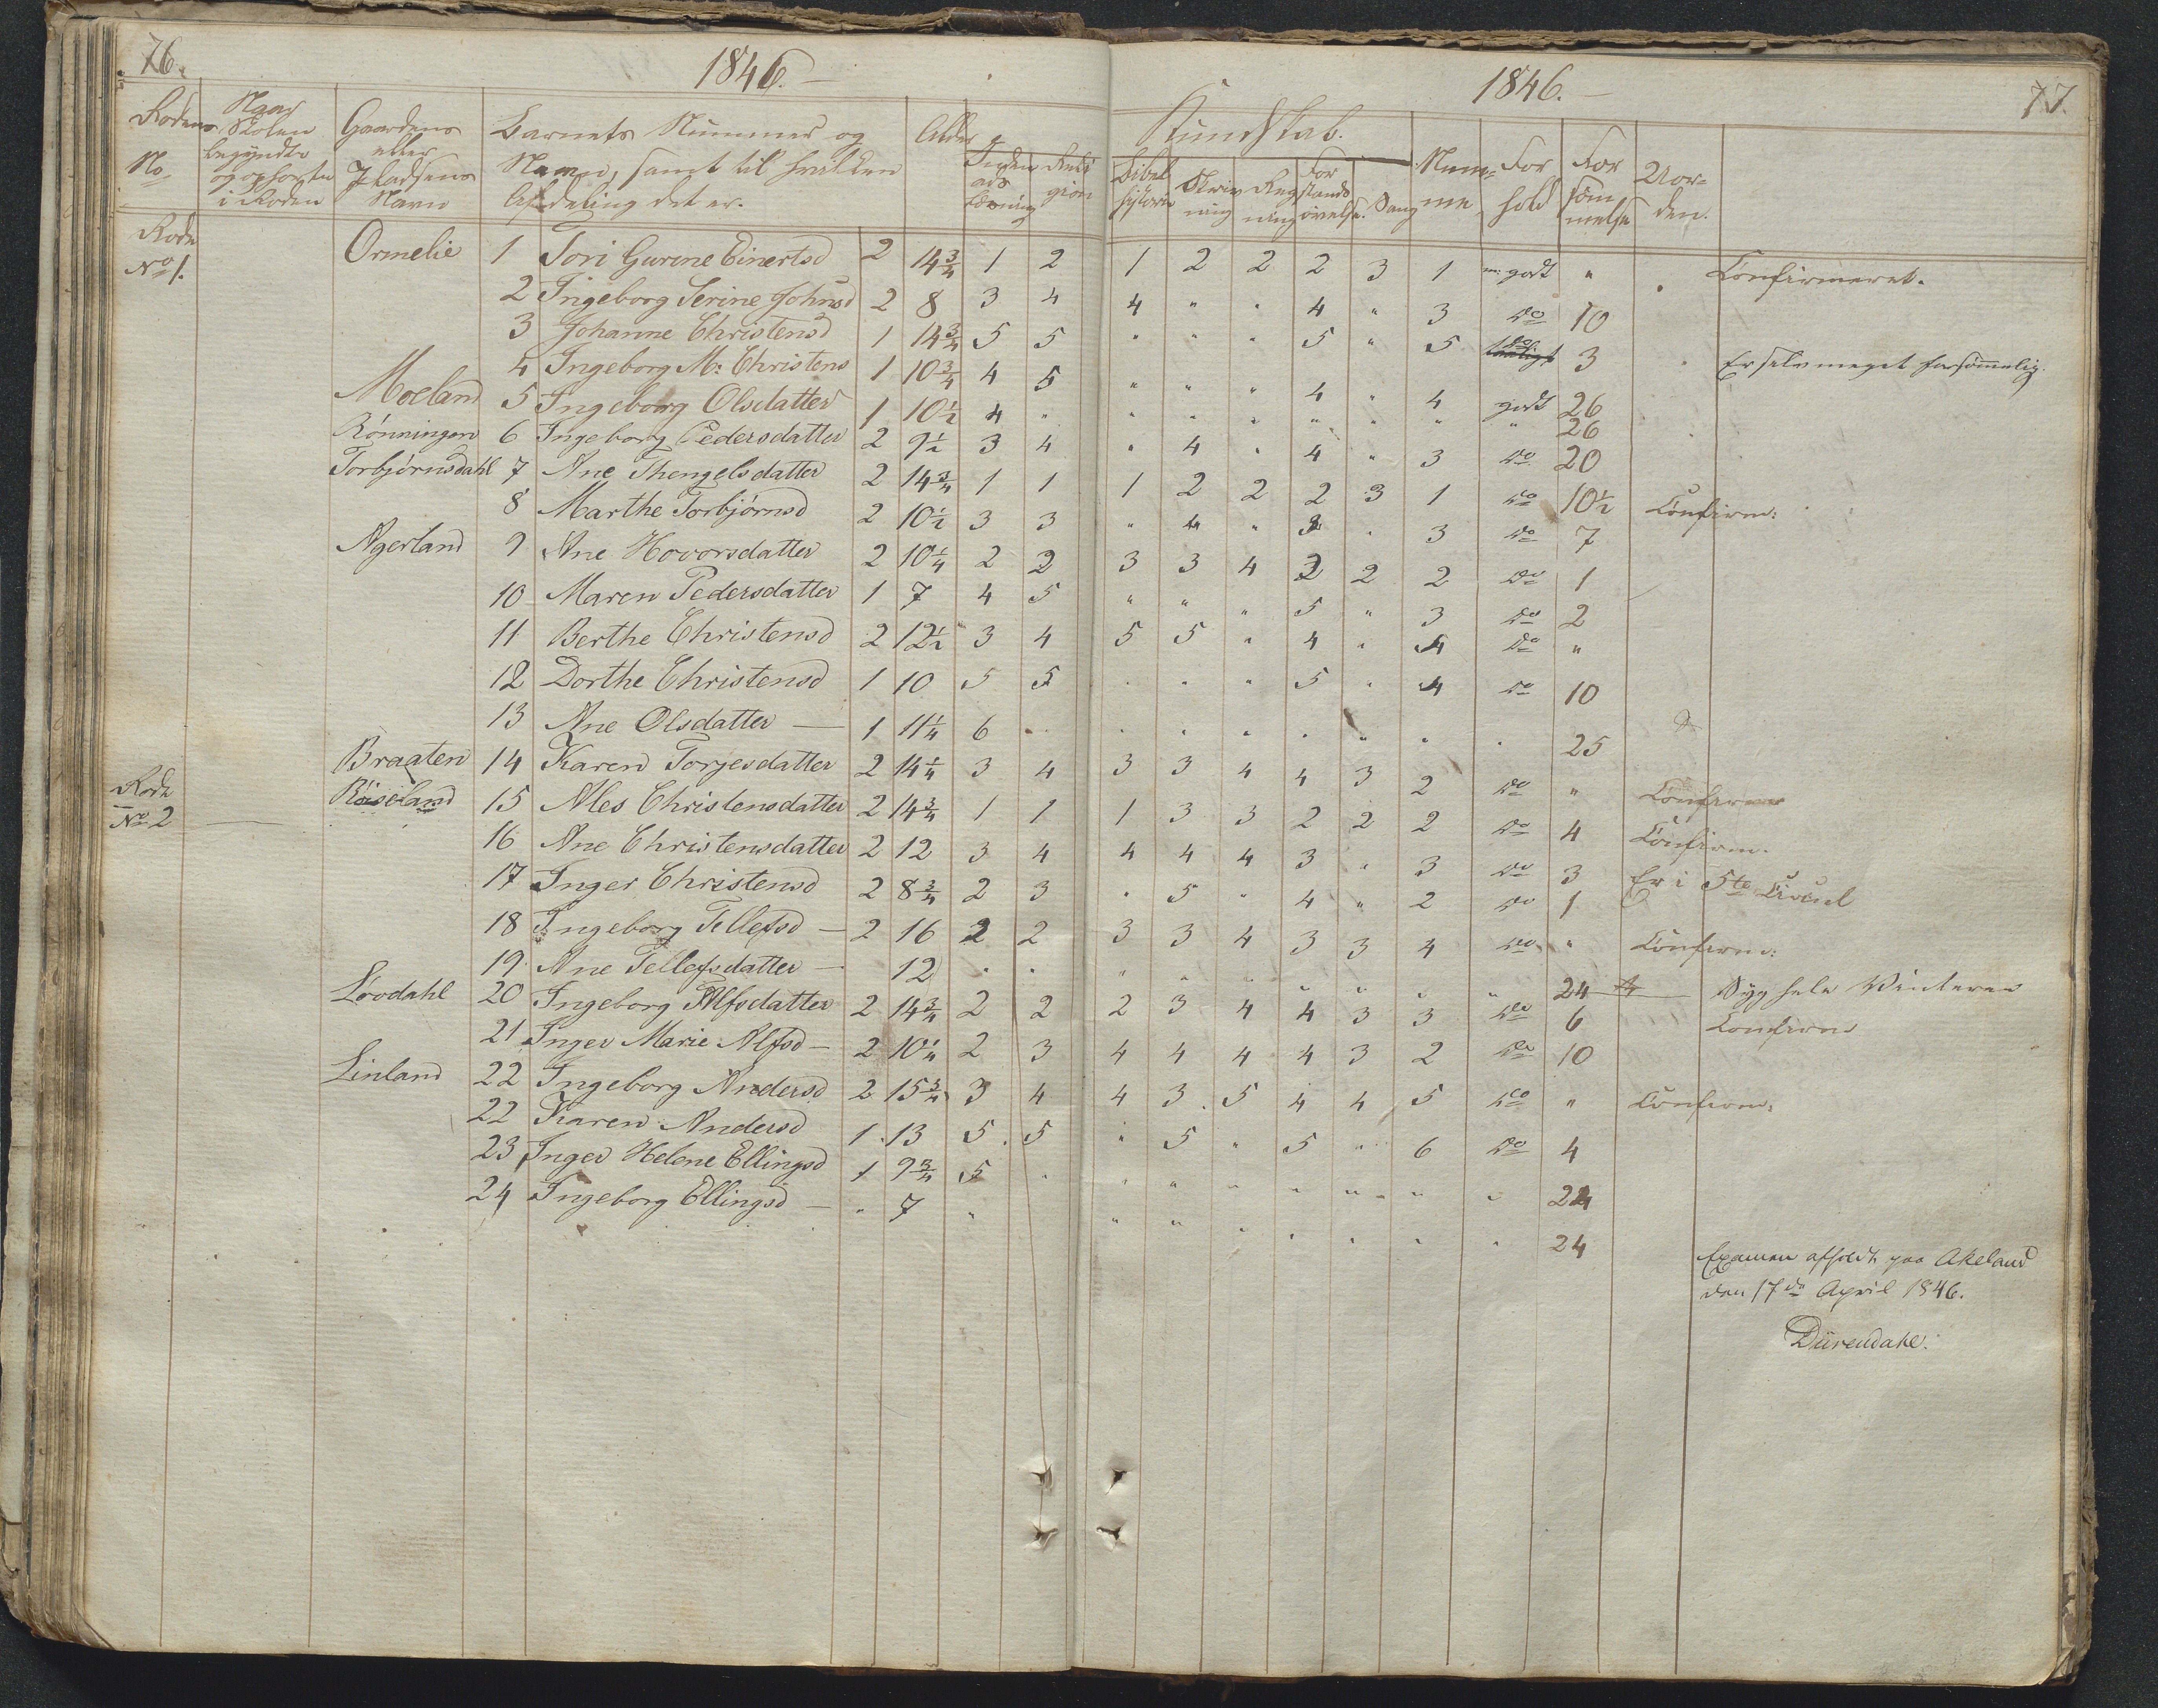 76.
1846.
1846.
77.
Rodens No.
Naar Skolen begyndte og ophørte i Roden
Gaardens eller Pladsens Navn
Barnets Nummer og Navn, samt til hvilken Afdeling det er.
Alder
Kundskab.
Inden ads Læsning
Religion
Bibel historie
Skrivning
Regning
Forstands øvelse.
Sang
Numme
Forhold
Forsømmelse
Rode No 1. Ormelie 1 Tori Gurine Einertsd 2 14 3/4 1 2 1 2 2 2 3 1 m: godt " Confirmeret.
2 Ingeborg Serine Johnsd 2 8 3 4 4 " " 4 " 3 do 10
3 Johanne Christensd 1 14 3/4 5 5 " " " 5 " 5 do 3 Er selv meget forsømmelig.
4 Ingeborg M: Christens 1 10 3/4 4 5 " " " 4 " 4 godt 26
Moeland 5 Ingeborg Olsdatter 1 10 1/2 4 " " " " " " " " 26
Rønningen 6 Ingeborg Pedersdatter 2 9 1/2 3 4 " 4 " 4 " 3 do 20
Torbjørnsdahl 7 Ane Thengelsdatter 2 14 3/4 1 1 1 2 2 2 3 1 do 10 1/2 Confirm:
8 Marthe Torbjørnsd 2 10 1/2 3 3 " 4 " 3 " 3 do 7
Agerland 9 Ane Hovorsdatter 2 10 1/4 2 2 3 3 4 2 2 2 do 1
10 Maren Pedersdatter 1 7 4 5 " " " 5 " 3 do 2
11 Berthe Christensd 2 12 1/2 3 4 5 5 " 4 " 4 do "
12 Dorthe Christensd 1 10 5 5 " " " 5 " 4 do 10
13 Ane Olsdatter — 1 11 1/4 6 " " " " " " " " 25
Braaten 14 Karen Torjesdatter 2 14 1/4 3 4 3 3 4 4 3 2 do " Confirm
Rode No 2 Røiseland 15 Ales Christensdatter 2 14 3/4 1 1 1 3 3 2 2 2 do 4 Confirm.
16 Ane Christensdatter 2 12 3 4 4 4 4 3 " 3 do 3
17 Inger Christensd 2 8 3/4 2 3 " 5 " 4 " 2 do 1 Er i 5te Circul
18 Ingeborg Tellefsd — 2 16 2 2 3 3 4 3 3 4 do " Confirm:
19 Ane Tellefsdatter — 12 " " " " " " " " " 24 Syg hele Vinteren
Løvdahl 20 Ingeborg Alfsdatter 2 14 3/4 2 2 2 3 4 4 3 3 do 6 Confirm
21 Inger Marie Alfsd — 2 10 1/4 2 3 4 4 4 4 3 2 do 10
Linland 22 Ingeborg Andersd 2 15 3/4 3 4 4 3 5 4 4 5 do " Confirm:
22 Karen Andersd 1 13 5 5 " 5 " 5 " 6 do 4
23 Inger Helene Ellingsd 1 9 3/4 5 " " " " " " " " 24
24 Ingeborg Ellingsd — " 7 " " " " " " " " 24
Examen afholdt paa Akeland
den 17de April 1846.
Dürendahl.